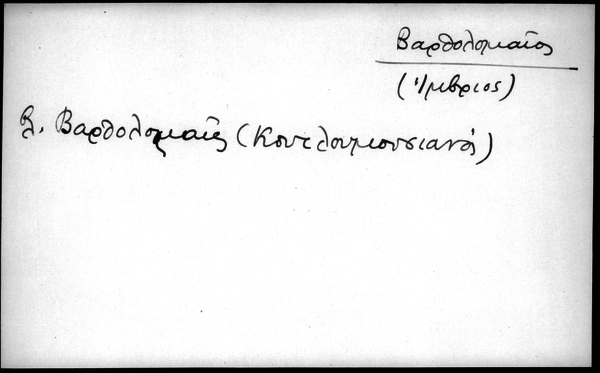 Βαρθολομαῖος
(Ἴμβριος)
βλ. Βαρθολομαῖος (Κουτλουμουσιανός)